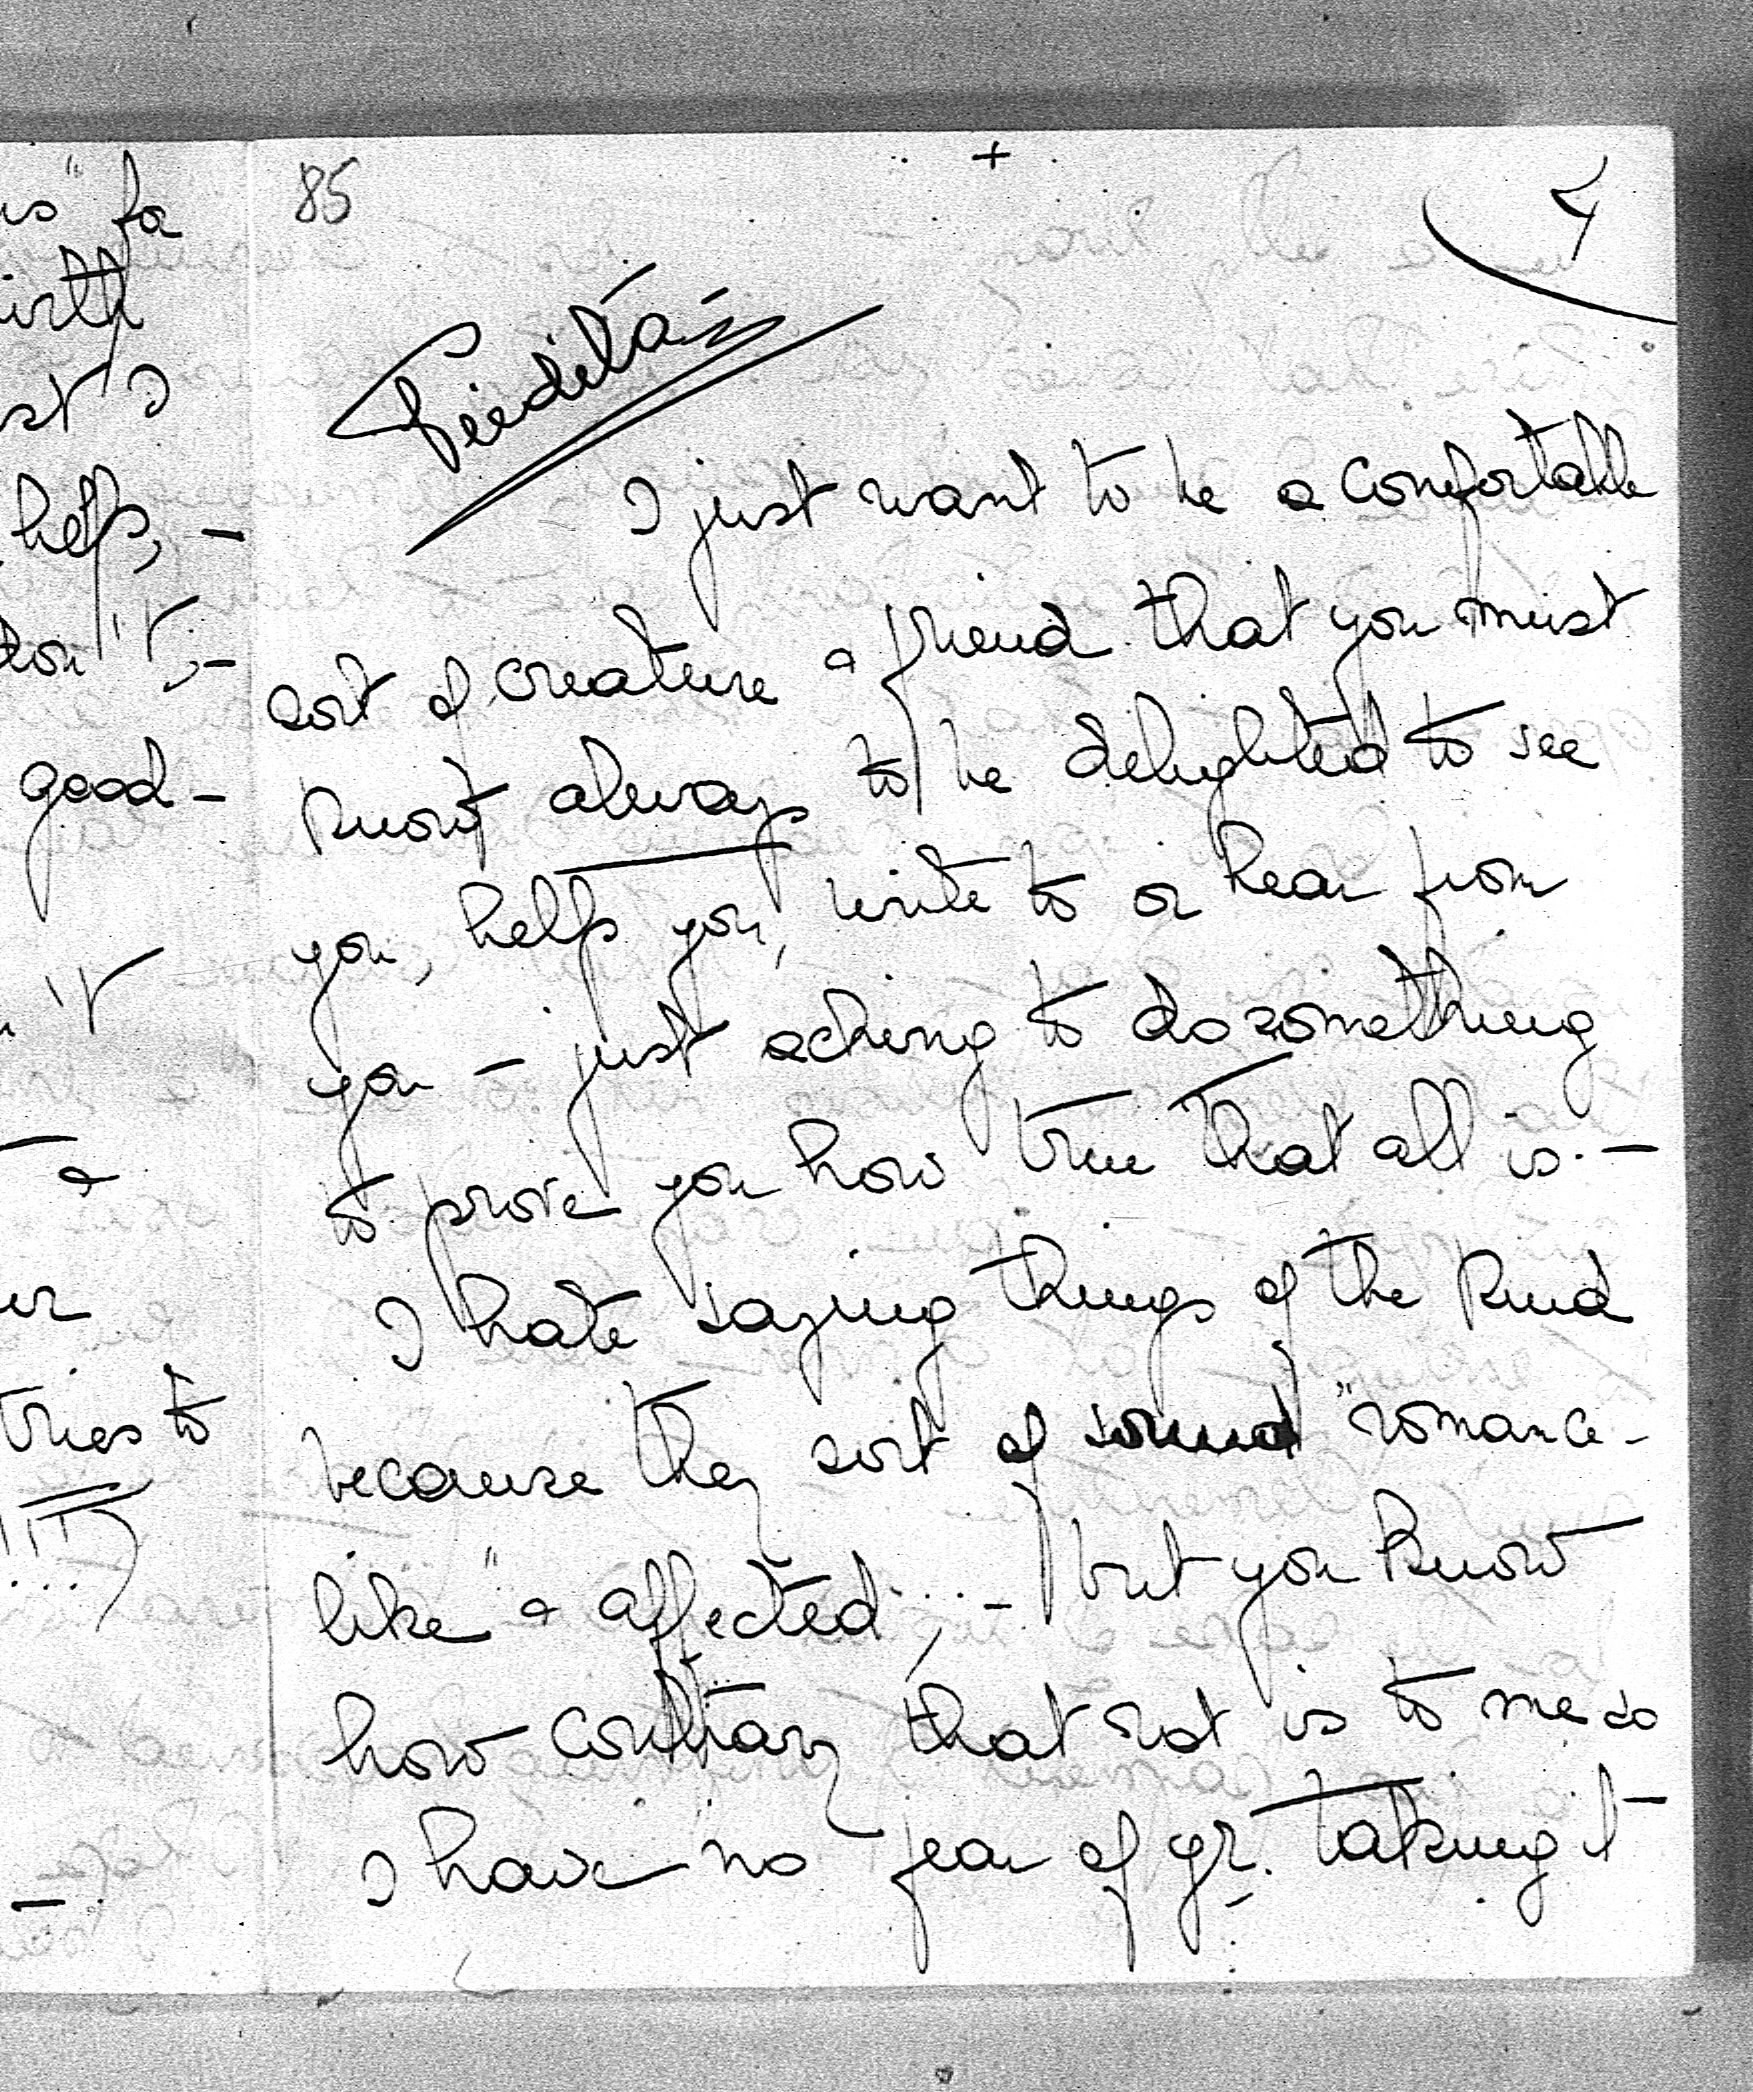 is" for
help, -
good -
&
tries to
85
+
I just want to be a comfortable
sort of creature & friend that you must
know always to be delighted to see
you, help you, write to or hear from
you - just aching to do something
to prove you how true that all is. -
I hate saying things of the kind
because they sort of sound "romance-
like" & affected, - but you know
how contrary that rot is to me so
I have no fear of yr. taking it